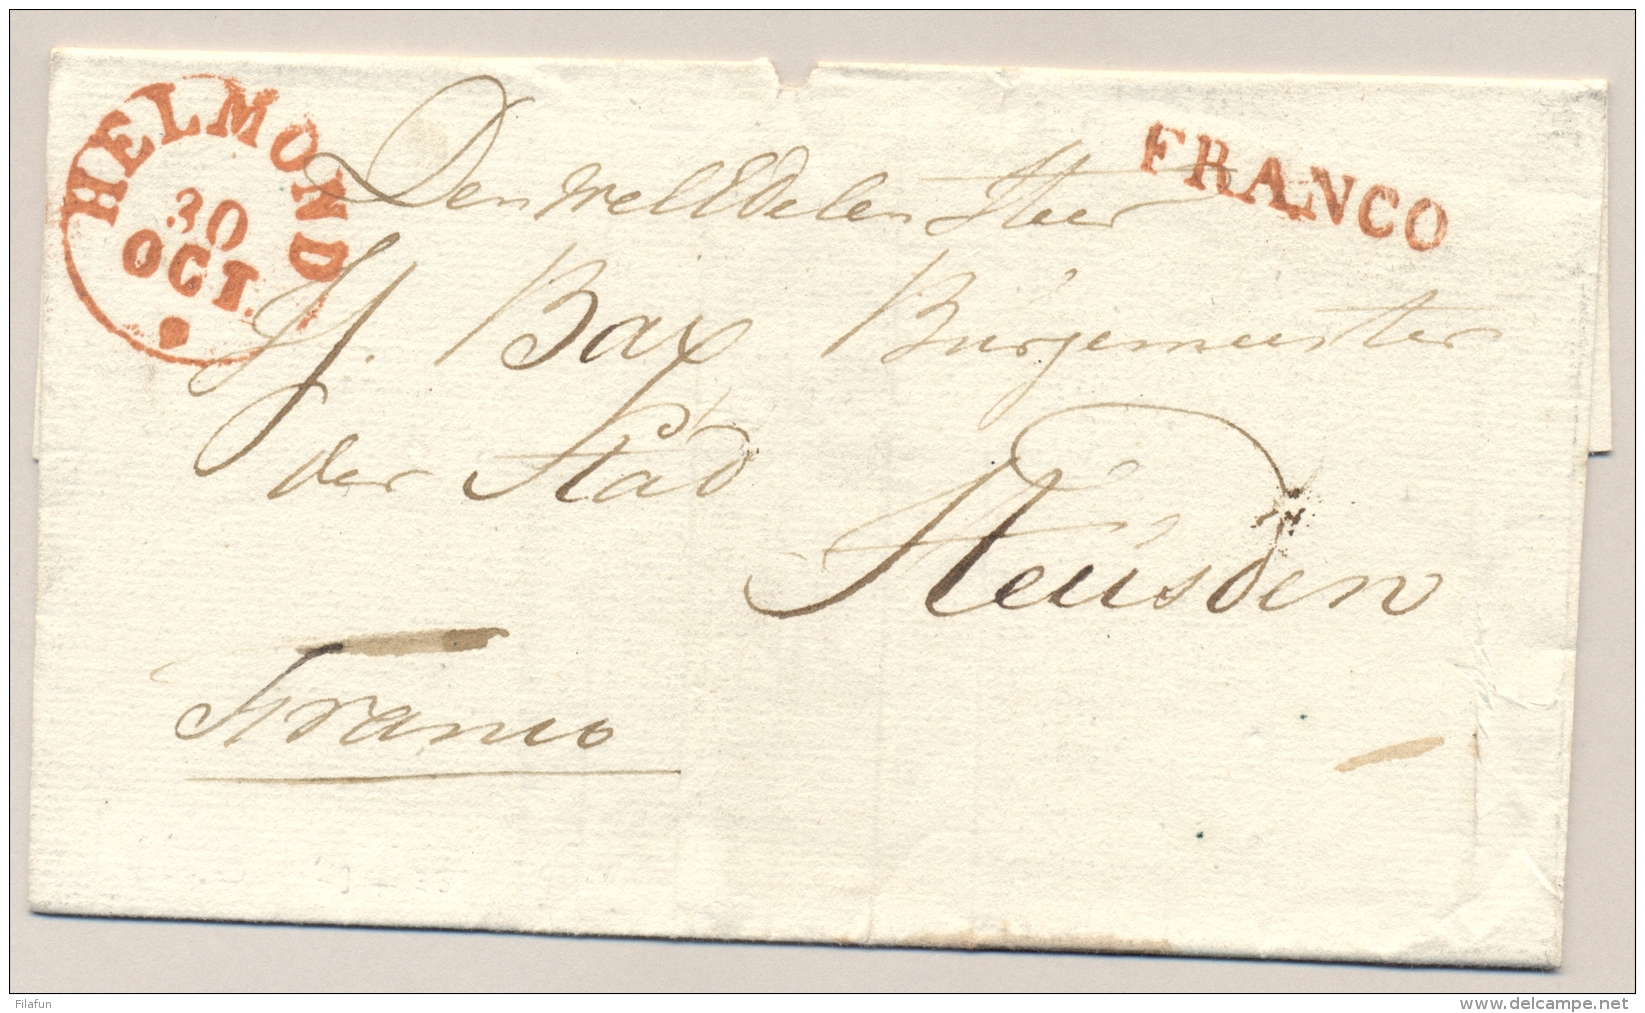 HELMOND
30
OCT.
FRANCO
Den WelEdelen Heer
JJ. Bax Burgemeister
der Stad
Heusden
Franco
Filafun
www.delcampe.net